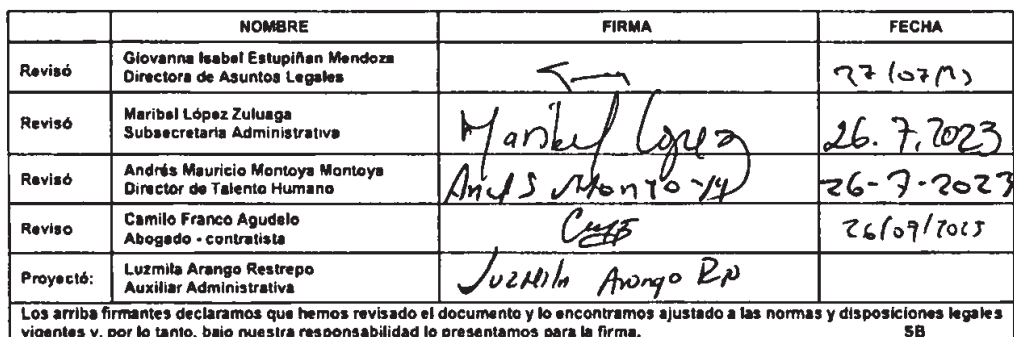 NOMBRE FIRMA FECHA
Revisó Giovanna Isabel Estupiñan Mendoza
Directora de Asuntos Legales
Revisó Maribel López Zuluaga
Subsecretaria Administrativa
Maribel López 26.7.2023
Revisó Andrés Mauricio Montoya Montoya
Director de Talento Humano
Montoya 26-7-2023
Reviso Camilo Franco Agudelo
Abogado - contratista
Proyectó: Luzmila Arango Restrepo
Auxiliar Administrativa
Luzmila Arango
Los arriba firmantes declaramos que hemos revisado el documento y lo encontramos ajustado a las normas y disposiciones legales
vigentes y, por lo tanto, bajo nuestra responsabilidad lo presentamos para la firma. SB